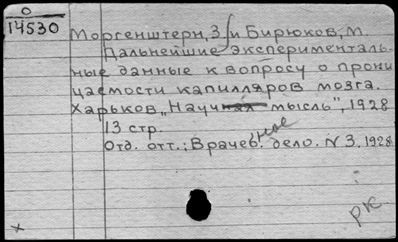 0
14530
Моргенштерн, З. и Бирюков, М.
Дальнейшие экспериментальные
ные данные к вопросу о прони
цаемости капилляров мозга.
Харьков, "Научная мысль", 1928
13 стр.
Отд. отт.: Врачебное дело. N 3. 1928
рк
x